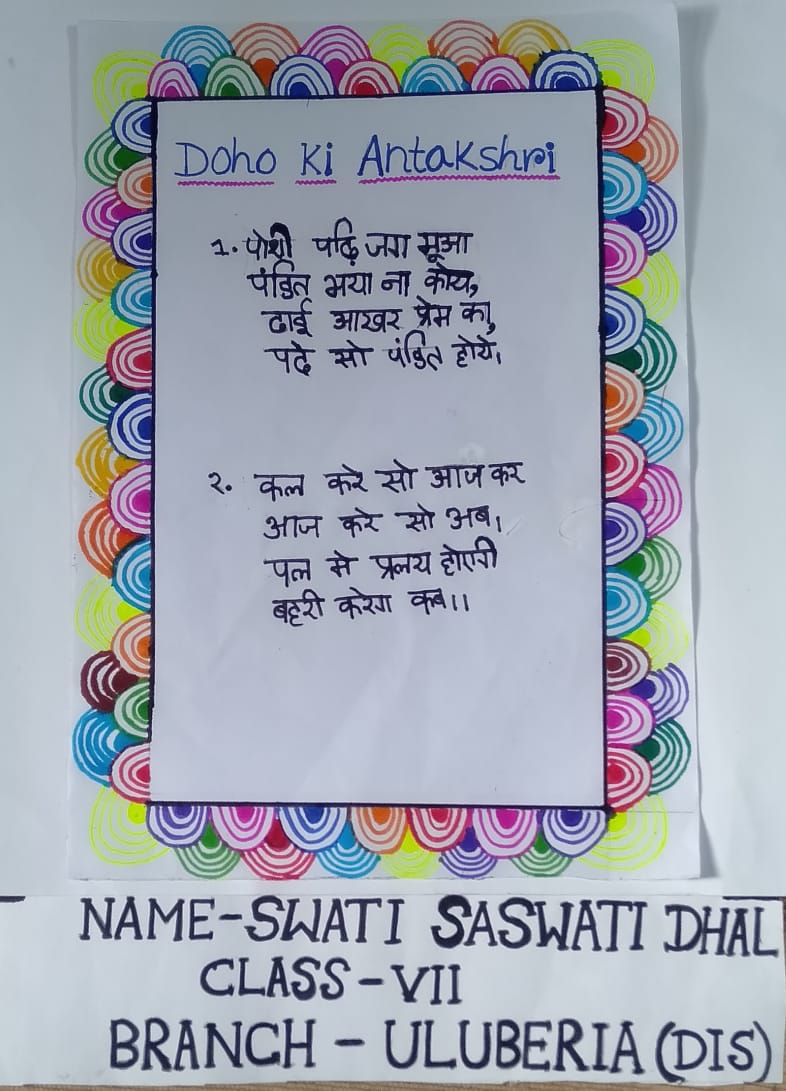 Doho Ki Antakshri
1. पोथी पढ़ि जग मूआ
पंडित भया ना कोय,
ढाई आखर प्रेम का,
पढे सो पंडित होये।
२. कल करे सो आज कर
आज करे सो अब।
पल मे प्रलय होएगी
बहुरी करेगा कब।।
NAME-SWATI SASWATI DHAL
CLASS-VII
BRANCH - ULUBERIA (DIS)